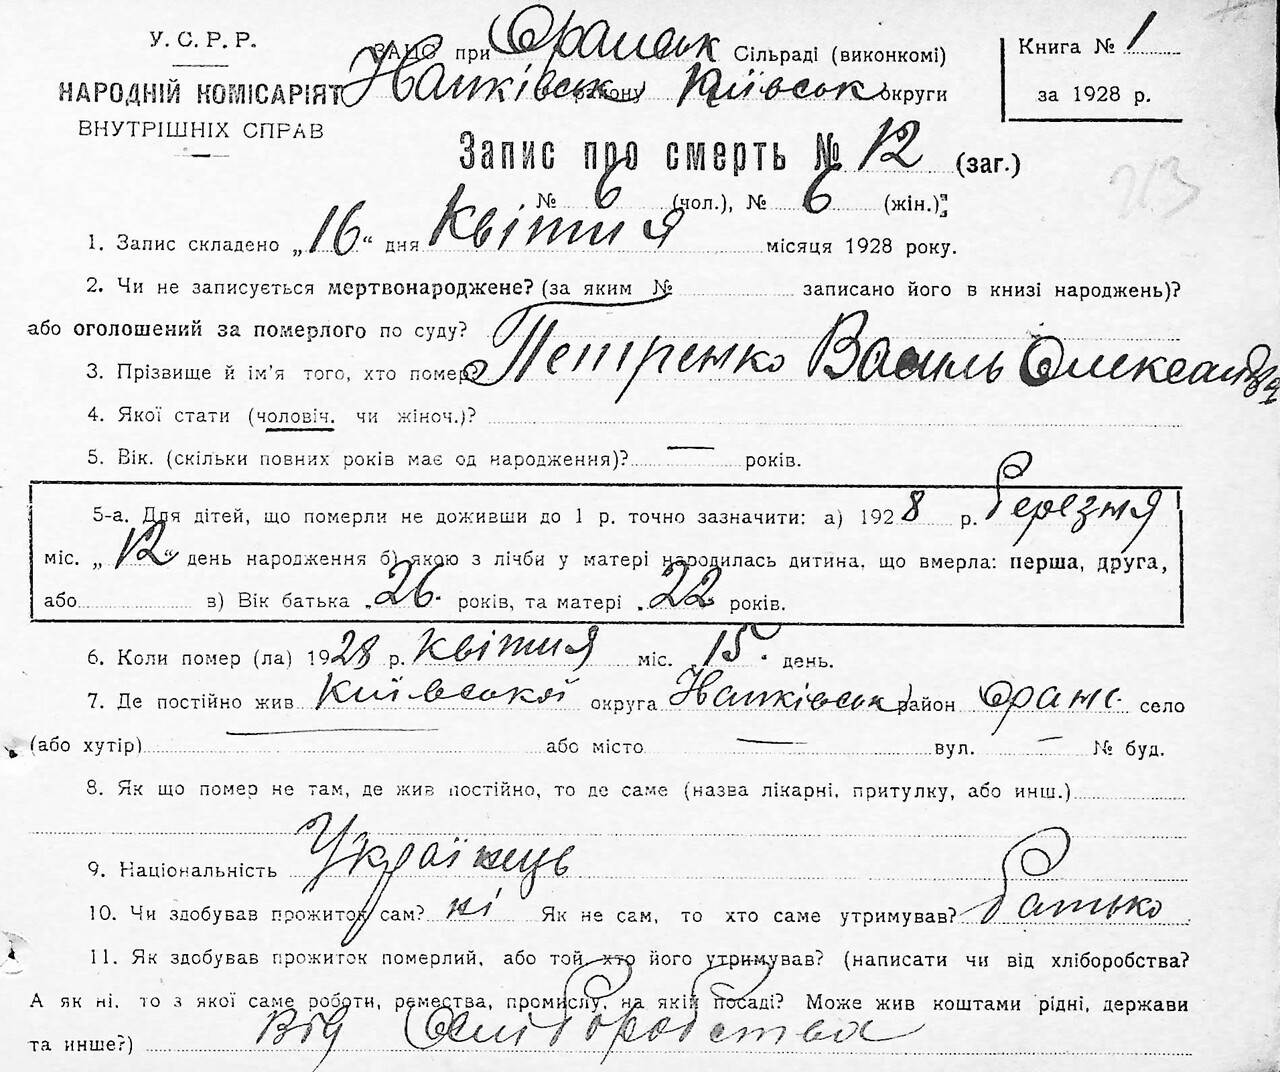 У. С. Р. Р.
НАРОДНІЙ КОМІСАРІЯТ
ВНУТРІШНІХ СПРАВ
ЗАГС при Сільраді (виконкомі)
району Київськ округи
Книга № 1
за 1928 р.
Запис про смерть № 12 (заг.)
№ 6 (чол.), № 6 (жін.)
213
1. Запис складено „16“ дня Квітня місяця 1928 року.
2. Чи не записується мертвонароджене? (за яким № записано його в книзі народжень)?
або оголошений за померлого по суду?
3. Прізвище й ім’я того, хто помер Петренко Василь Олександр
4. Якої стати (чоловіч. чи жіноч.)?
5. Вік. (скільки повних років має од народження)? — років.
5-а. Для дітей, що померли не доживши до 1 р. точно зазначити: а) 1928 р. Березня
міс. „12“ день народження б) якою з лічби у матері народилась дитина, що вмерла: перша, друга,
або в) Вік батька 26 років, та матері 22 років.
6. Коли помер (ла) 1928 р. квітня міс. 15 день.
7. Де постійно жив Київської округа район село
(або хутір) — або місто — вул. — № буд.
8. Як що помер не там, де жив постійно, то де саме (назва лікарні, притулку, або инш.)
9. Національність Українець
10. Чи здобував прожиток сам? ні Як не сам, то хто саме утримував? батько
11. Як здобував прожиток померлий, або той, хто його утримував? (написати чи від хліборобства?
А як ні, то з якої саме роботи, ремества, промислу, на якій посаді? Може жив коштами рідні, держави
та инше?) Від хліборобства